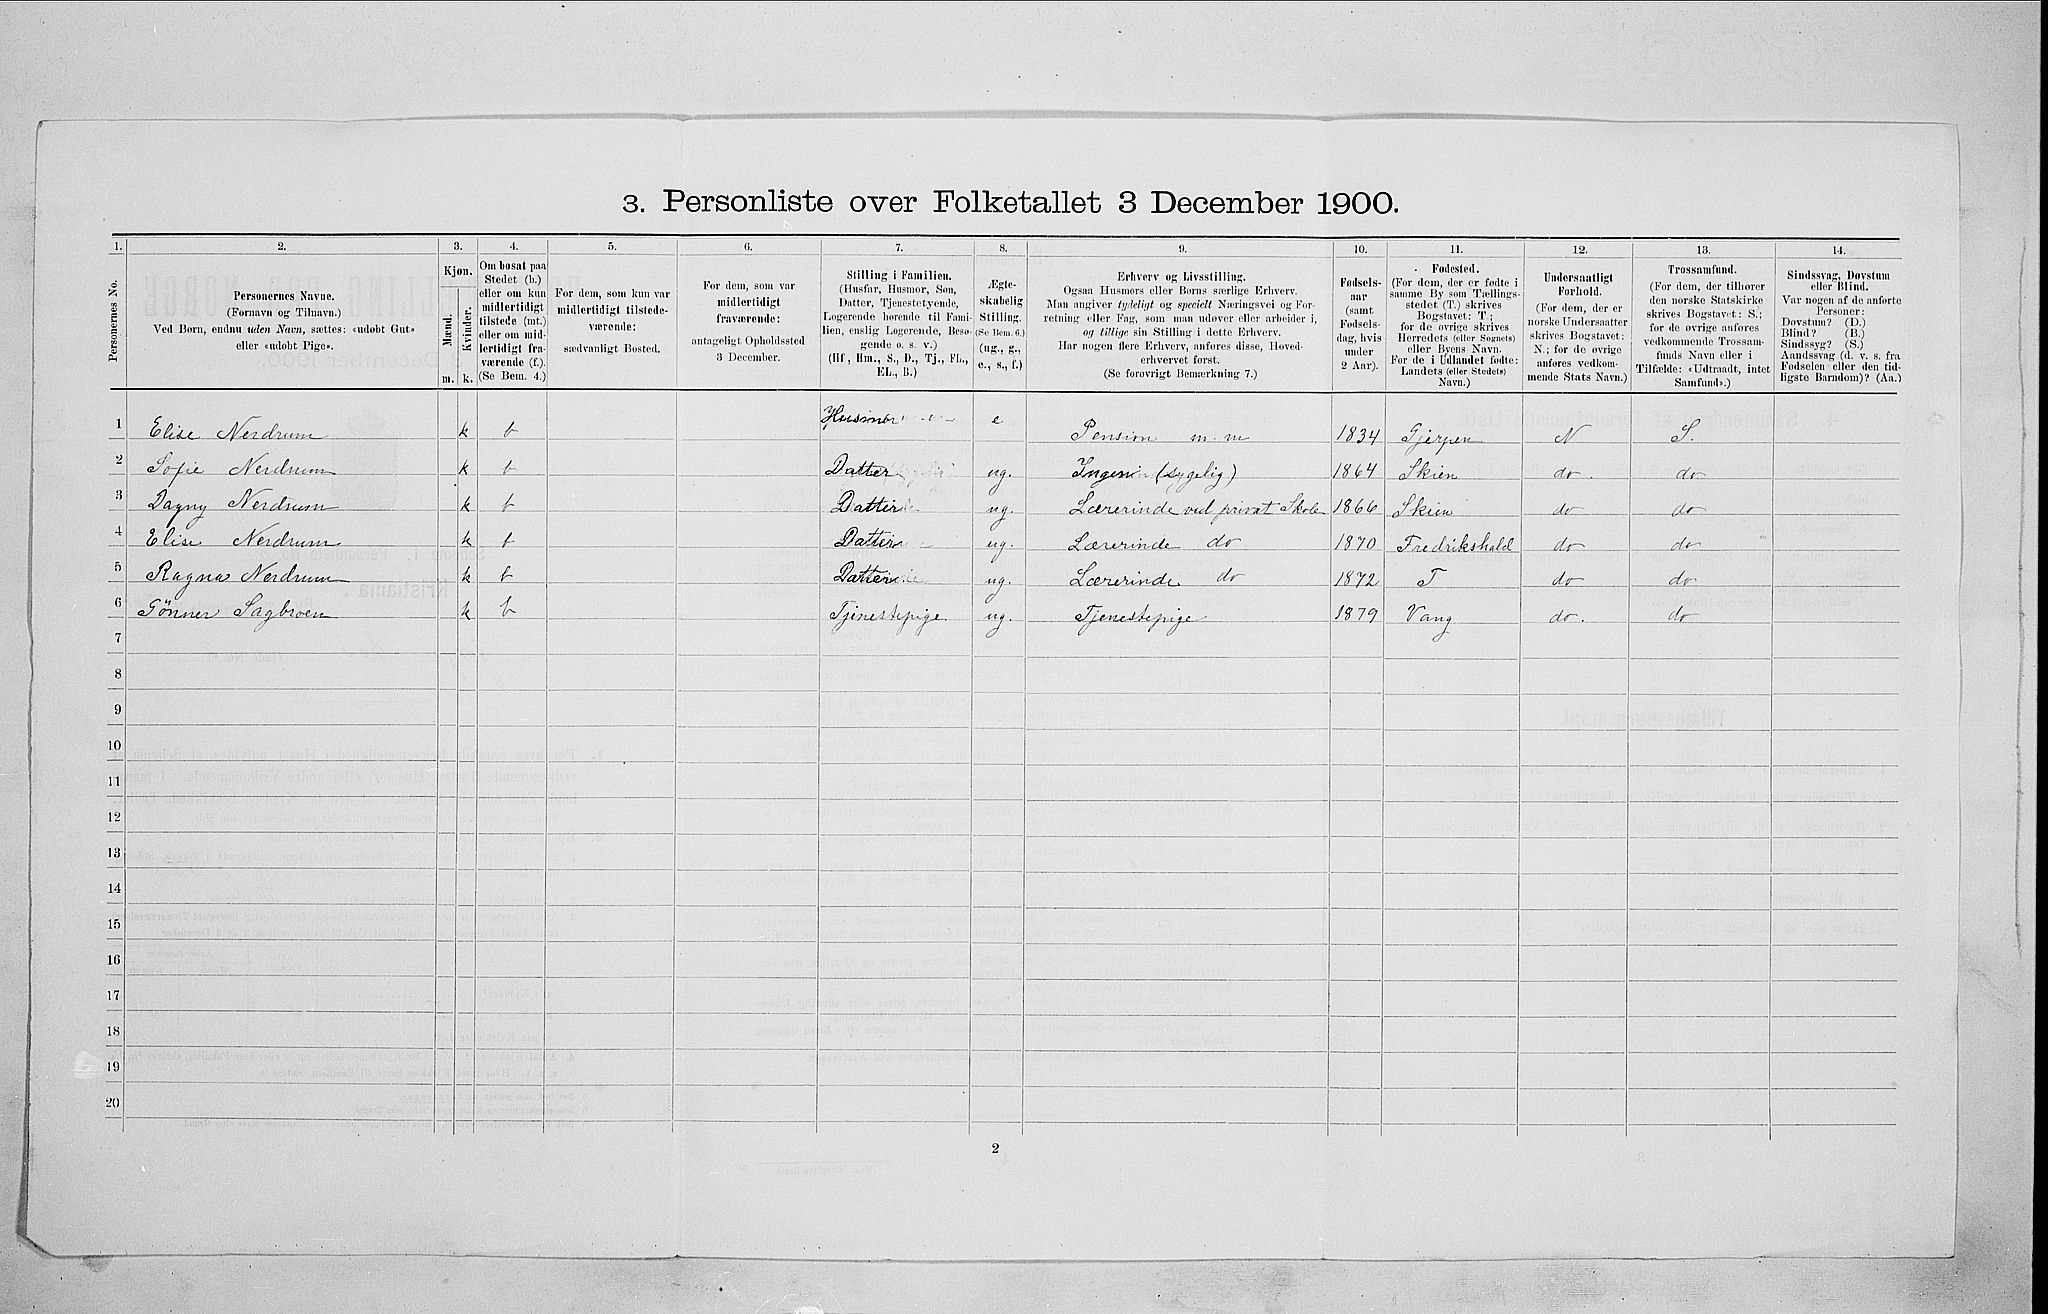 3. Personliste over Folketallet 3 December 1900.
1. 2. 3. 4. 5. 6. 7. 8. 9. 10. 11. 12. 13. 14.
Personernes No.
Personernes Navne.
(Fornavn og Tilnavn.)
Ved Børn, endnu uden Navn, sættes: «udøbt Gut»
eller «udøbt Pige».
Kjøn.
Mænd.
Kvinder.
m. k.
Om bosat paa
Stedet (b.)
eller om kun
midlertidigt
tilstede (mt.)
eller om mid-
lertidigt fra-
værende (f.).
(Se Bem. 4.)
For dem, som kun var
midlertidigt tilstede-
værende:
sædvanligt Bosted.
For dem, som var
midlertidigt
fraværende:
antageligt Opholdssted
3 December.
Stilling i Familien.
(Husfar, Husmor, Søn,
Datter, Tjenestetyende,
Logerende hørende til Fami-
lien, enslig Logerende, Besø-
gende o. s. v.)
(Hf, Hm., S., D., Tj., FL.,
EL., B.)
Ægte-
skabelig
Stilling.
(Se Bem. 6.)
(ug., g.,
e., s., f.)
Erhverv og Livsstilling.
Ogsaa Husmors eller Børns særlige Erhverv.
Man angiver tydeligt og specielt Næringsvei og For-
retning eller Fag, som man udøver eller arbeider i,
og tillige sin Stilling i dette Erhverv.
Har nogen flere Erhverv, anføres disse, Hoved-
erhvervet først.
(Se forøvrigt Bemærkning 7.)
Fødsels-
aar
(samt
Fødsels-
dag, hvis
under
2 Aar).
Fødested.
(For dem, der er fødte i
samme By som Tællings-
stedet (T.) skrives
Bogstavet: T;
for de øvrige skrives
Herredets (eller Sognets)
eller Byens Navn.
For de i Udlandet fødte:
Landets (eller Stedets)
Navn.)
Undersaatligt
Forhold.
(For dem, der er
norske Undersaatter
skrives Bogstavet:
N.; for de øvrige
anføres vedkom-
mende Stats Navn.)
Trossamfund.
(For dem, der tilhører
den norske Statskirke
skrives Bogstavet: S.;
for de øvrige anføres
vedkommende Trossam-
funds Navn eller i
Tilfælde: «Udtraadt, intet
Samfund».)
Sindssvag, Døvstum
eller Blind.
Var nogen af de anførte
Personer:
Døvstum? (D.)
Blind? (B.)
Sindssyg? (S.)
Aandssvag (d. v. s. fra
Fødselen eller den tid-
ligste Barndom)? (Aa.)
1 Elise Nerdrum k b Husmor e Pension m. m 1834 Gjerpen N S.
2 Sofie Nerdrum k b Datter ug. Ingen (sygelig) 1864 Skien do. do
3 Dagny Nerdrum k b Datter ug. Lærerinde ved privat Skole 1866 Skien do do
4 Elise Nerdrum k b Datter ug. Lærerinde do 1870 Fredrikshald do do
5 Ragna Nerdrum k b Datter ug. Lærerinde do 1872 T do do
6 Gønner Sagbroen k b Tjenestepige ug. Tjenestepige 1879 Vang do. do
7
8
9
10
11
12
13
14
15
16
17
18
19
20
2